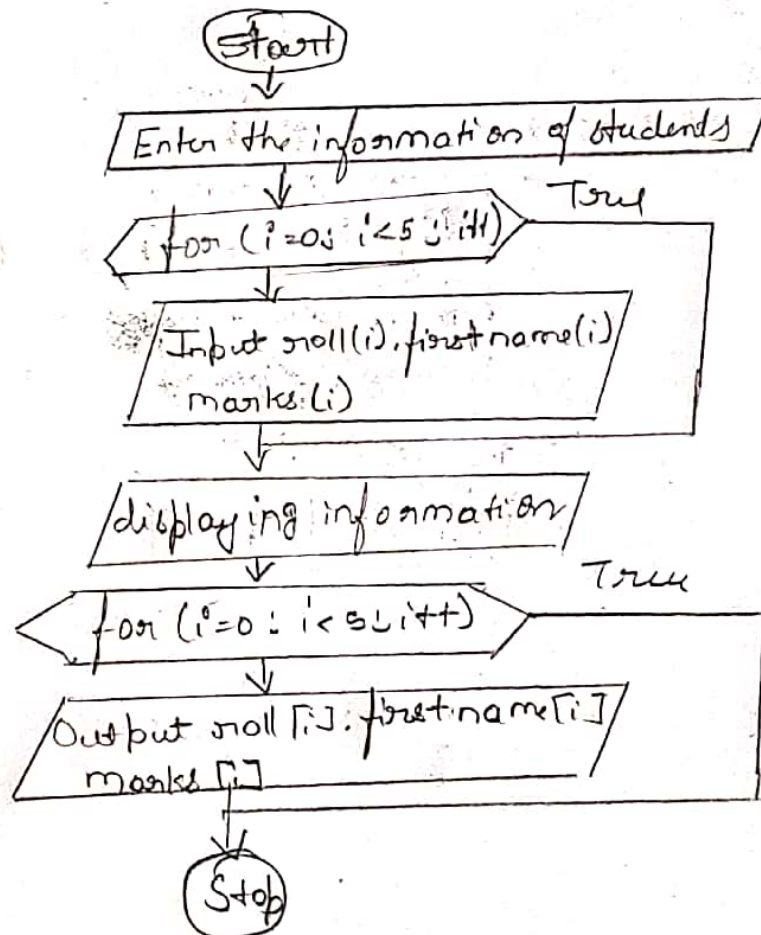 Start
Enter the information of students
True
for (i=0; i<5; i++)
Input roll(i).firstname(i)
marks.(i)
displaying information
True
for (i=0; i<5; i++)
Output roll[i].firstname[i]
marks[i]
Stop